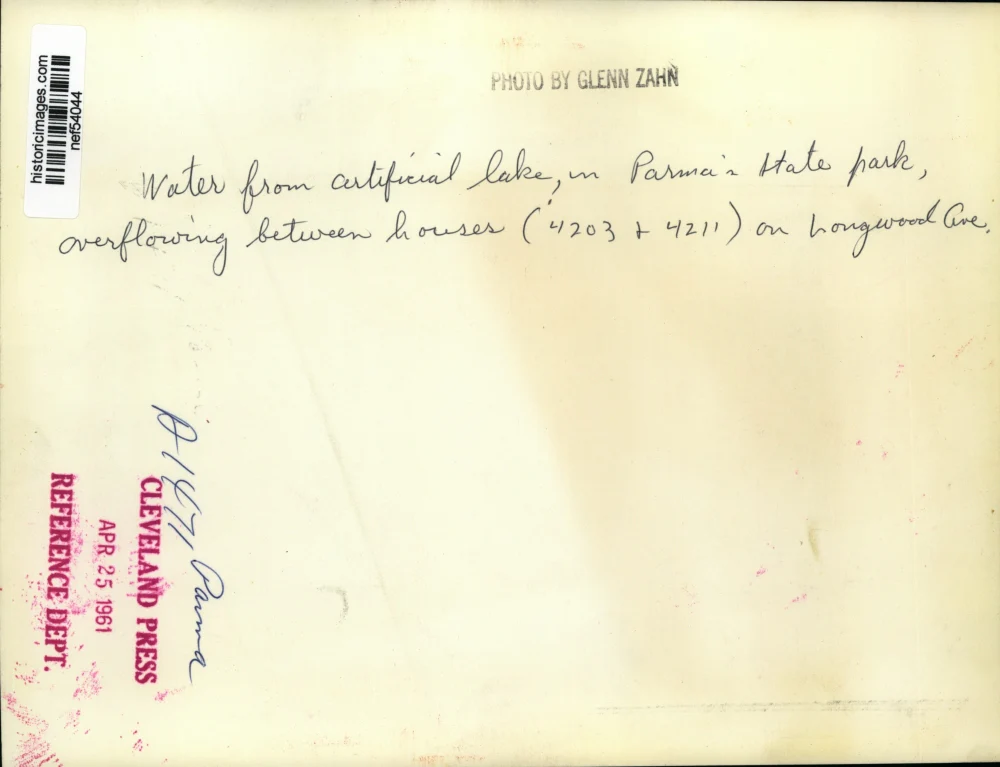 historicimages.com
nef54044
PHOTO BY GLENN ZAHN
Water from artificial lake, in Parma's State park,
overflowing between houses (4203 & 4211) on Longwood Ave.
A-1471 Parma
CLEVELAND PRESS
APR 25 1961
REFERENCE DEPT.